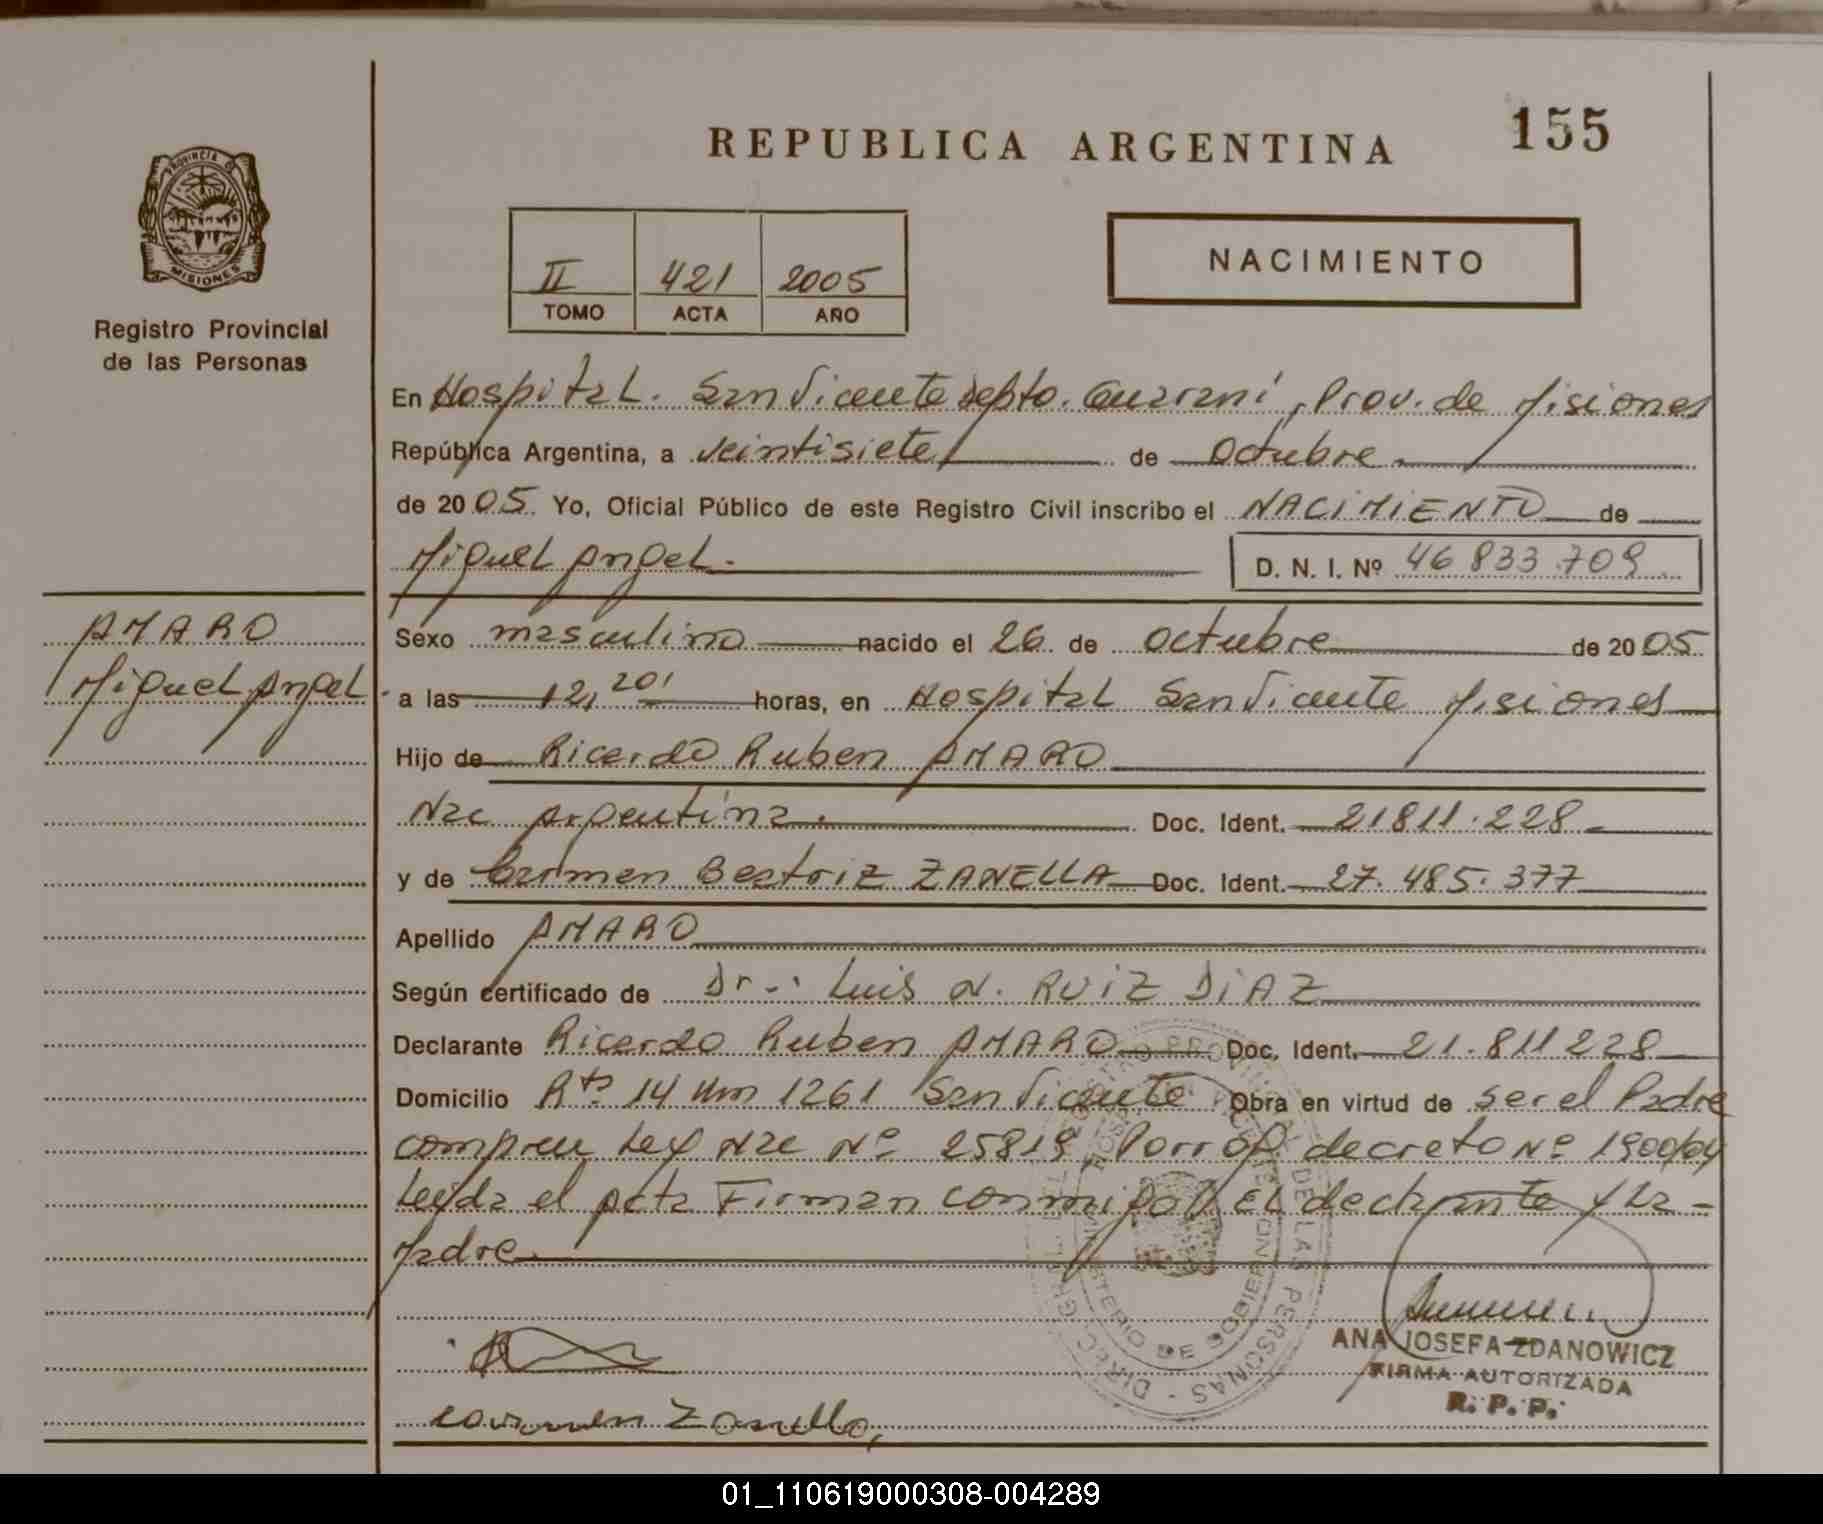 REPUBLICA ARGENTINA
155
PROVINCIA DE
MISIONES
Registro Provincial
de las Personas
II 421 2005
TOMO ACTA AÑO
NACIMIENTO
En Hospital. San Vicente Depto. Guaraní, Prov. de Misiones
República Argentina, a veintisiete de Octubre
de 2005. Yo, Oficial Público de este Registro Civil inscribo el NACIMIENTO de
Miguel Angel.
D. N. I. Nº 46 833 709
AMARO
Miguel Angel
Sexo masculino nacido el 26 de Octubre de 2005
a las 12,20' horas, en Hospital San Vicente Misiones
Hijo de Ricardo Ruben AMARO
Nac Argentina. Doc. Ident. 21811.228
y de Carmen Beatriz ZANELLA Doc. Ident. 27.485.377
Apellido AMARO
Según certificado de Dr.: Luis N. RUIZ DIAZ
Declarante Ricardo Ruben AMARO Doc. Ident. 21.811228
Domicilio Rta 14 Km 1261 San Vicente Obra en virtud de ser el Padre
compren Ley Nac Nº 25819, Porrog. decreto Nº 1900/04
Leída el acta Firman conmigo, El declarante y La-
Madre.
DE LAS PERSONAS
MINISTERIO DE GOBIERNO
ANA JOSEFA ZDANOWICZ
FIRMA AUTORIZADA
R. P. P.
Carmen Zanella,
01_110619000308-004289